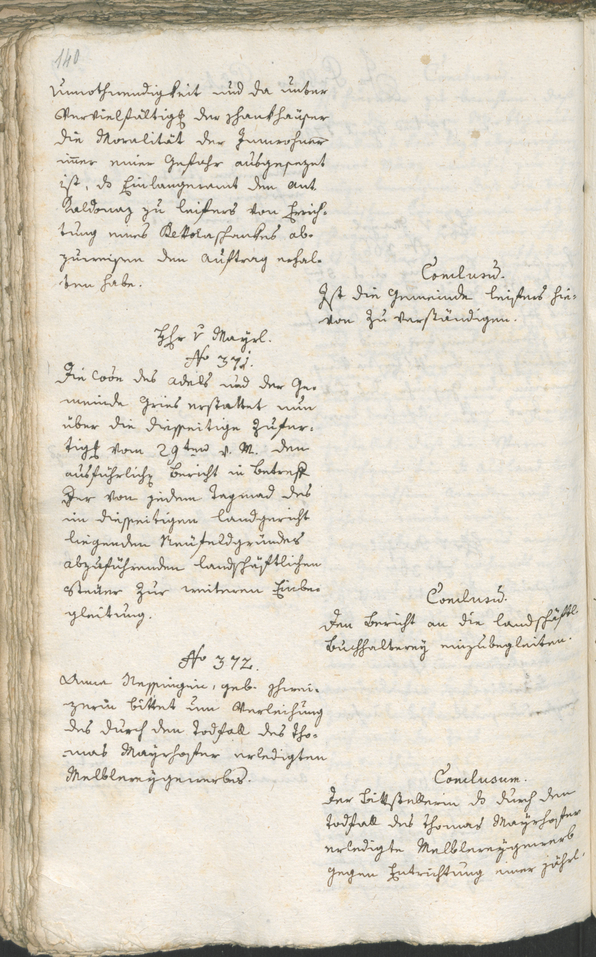 140
Unnothwendigkeit und da under
Vervielfältigg der schankhäuser
die Moralität der Innwohner
imer einer Gefahr ausgesezet
ist, ds Einlangeramt den
Kaldonaz zu leifers von Erich-
tung eines ab-
zuweisen den Auftrag erhal-
ten habe.
Conclusũ.
Ist die Gemeinde leifers hie-
von zu verständigen.
Hr v Mayrl.
No 371.
Die des Adels und der Ge-
meinde Gries erstattet nun
über die diesseitige Zufer-
tigg vom 29ten v. M. den
ausführlichen Bericht in Betreff
Der von jedem Tagmad des
im diesseitigen landgericht
liegenden Neufeldgrundes
abzuführenden landschäftlichen
Steuer zur weiteren Einbe-
gleitung.
Conclusũ.
Den Bericht an die landschäftl.
Buchhalterey einzubegleiten.
No 372.
Anna geb. schwei-
zerin bittet um Verleihung
des durch den Todfall des Tho-
mas Mayrhofer erledigten
Melblereygewerbes.
Conclusum.
Der Bittstellerin ds durch den
Todfall des Thomas Mayrhofer
erledigte Melblereygewerb
gegen Entrichtung einer jährl.